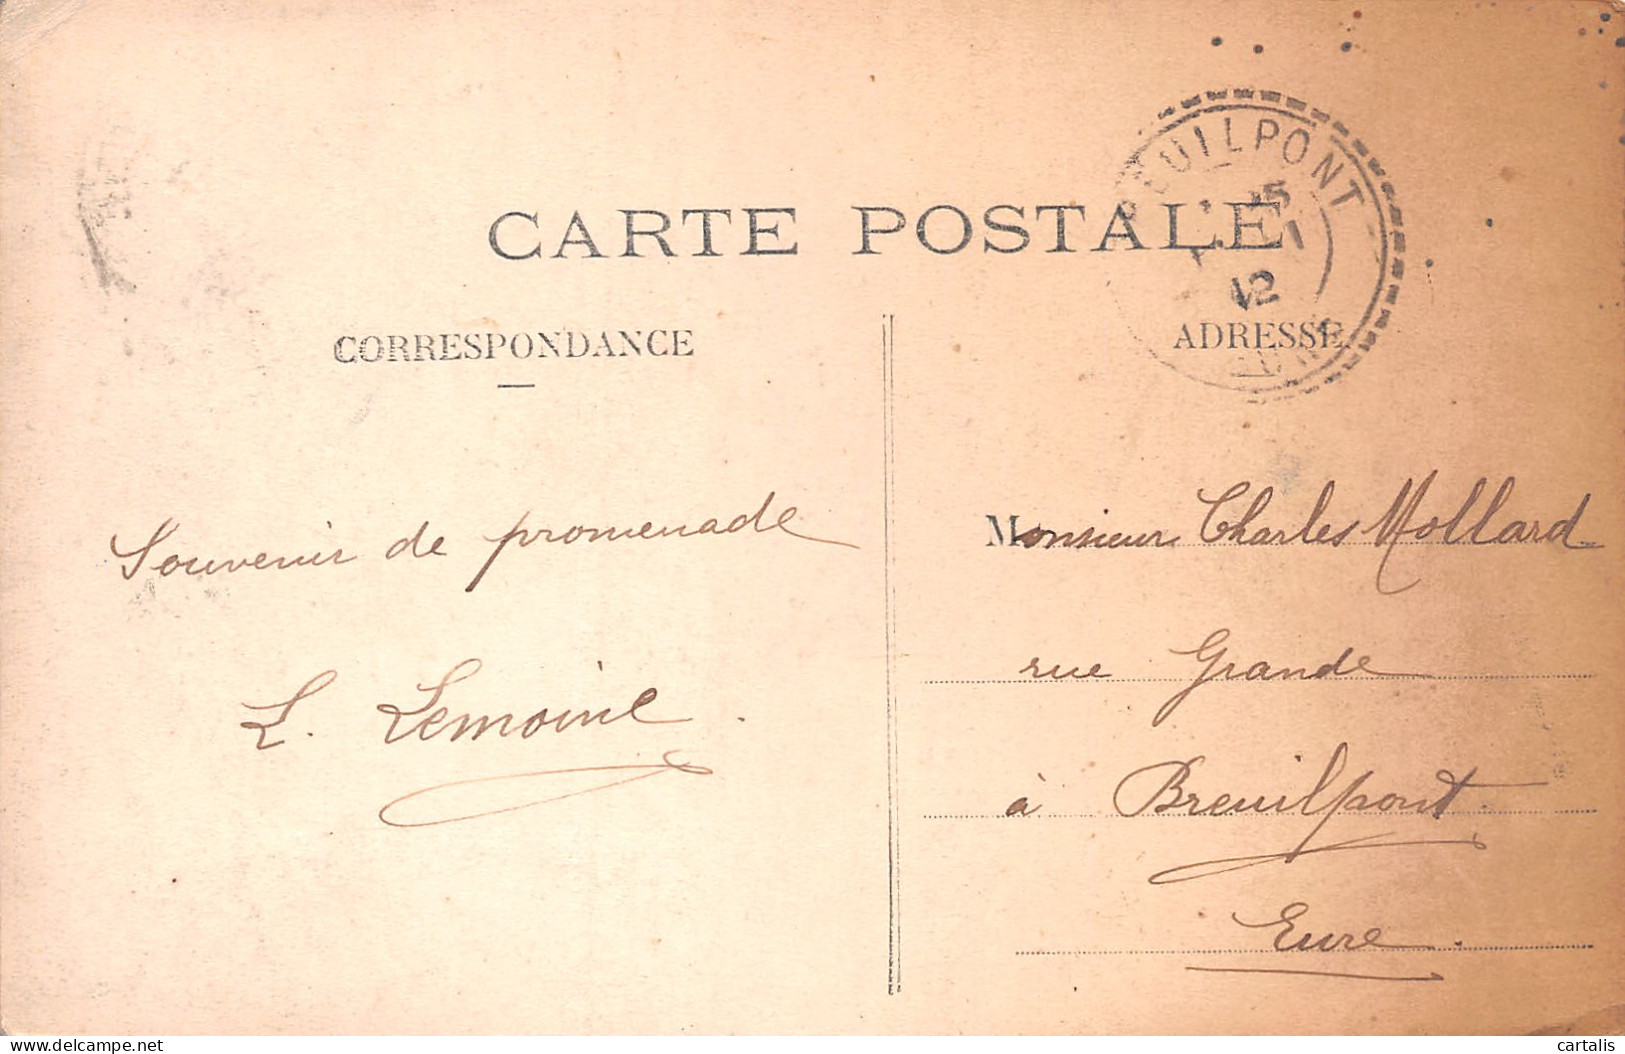 CARTE POSTALE
CORRESPONDANCE
ADRESSE
BREUILPONT
12
EURE
Souvenir de promenade
L. Lemoine.
Monsieur Charles Mollard
rue Grande
à Breuilpont.
Eure.
delcampe.net
cartalis